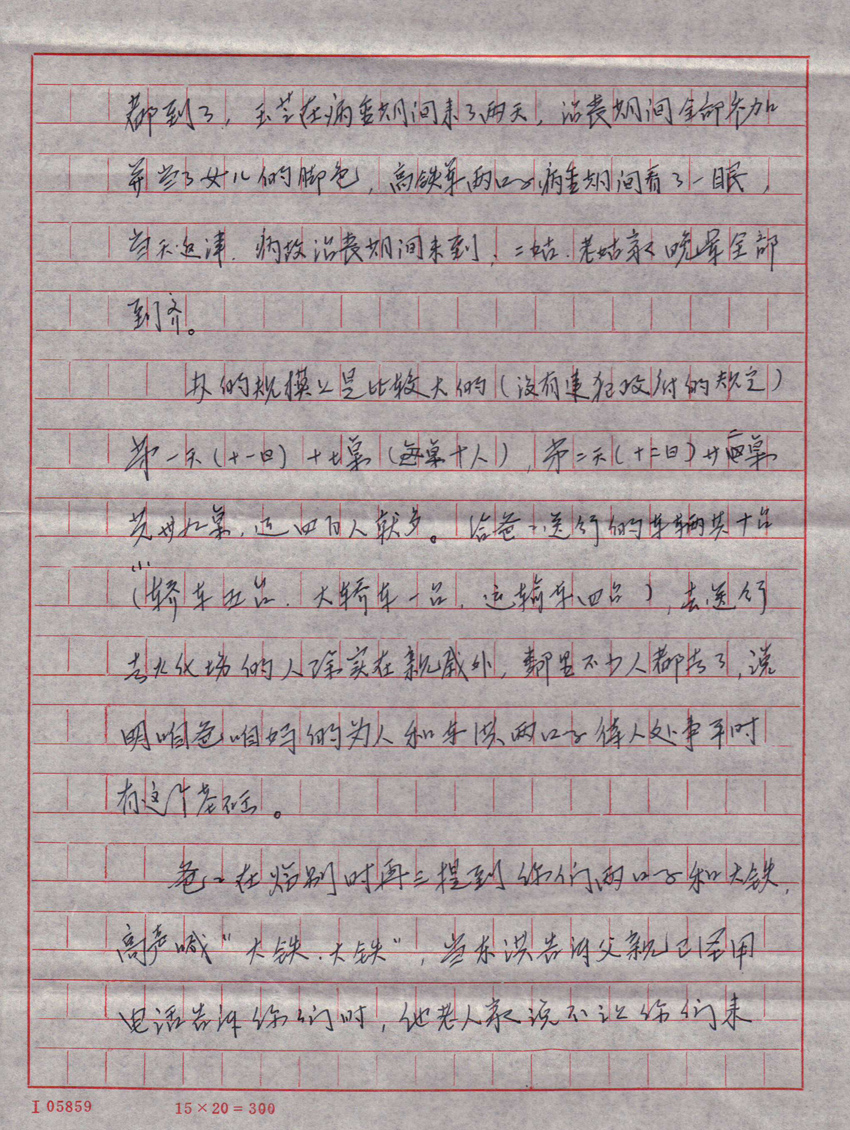 都到了，玉芝在病重期间来了两天，治丧期间全部参加
并当了女儿的脚色，高铁军两口子病重期间看了一眼，
当天返津，病故治丧期间未到，二姑、老姑家晚辈全部
到齐。
办的规模上是比较大的（没有违犯政府的规定）
第一天（十一日）十七菜（每菜十人），第二天（十二日）廿二菜
共卅九菜，近四百人就多。给爸爸送行的车辆共十台
（轿车五台、大轿车一台，运输车四台），去送行
去火化场的人除实在亲戚外，郭里不少人都去了，说
明咱爸咱妈们的为人和东洪两口子伟人处事平时
有这个基础。
爸爸在临别时再三提到你们两口子和大铁，
高声喊“大铁、大铁”，当东洪告诉父亲已经用
电话告诉你们时，他老人家说不让你们来
I 05859 15×20=300